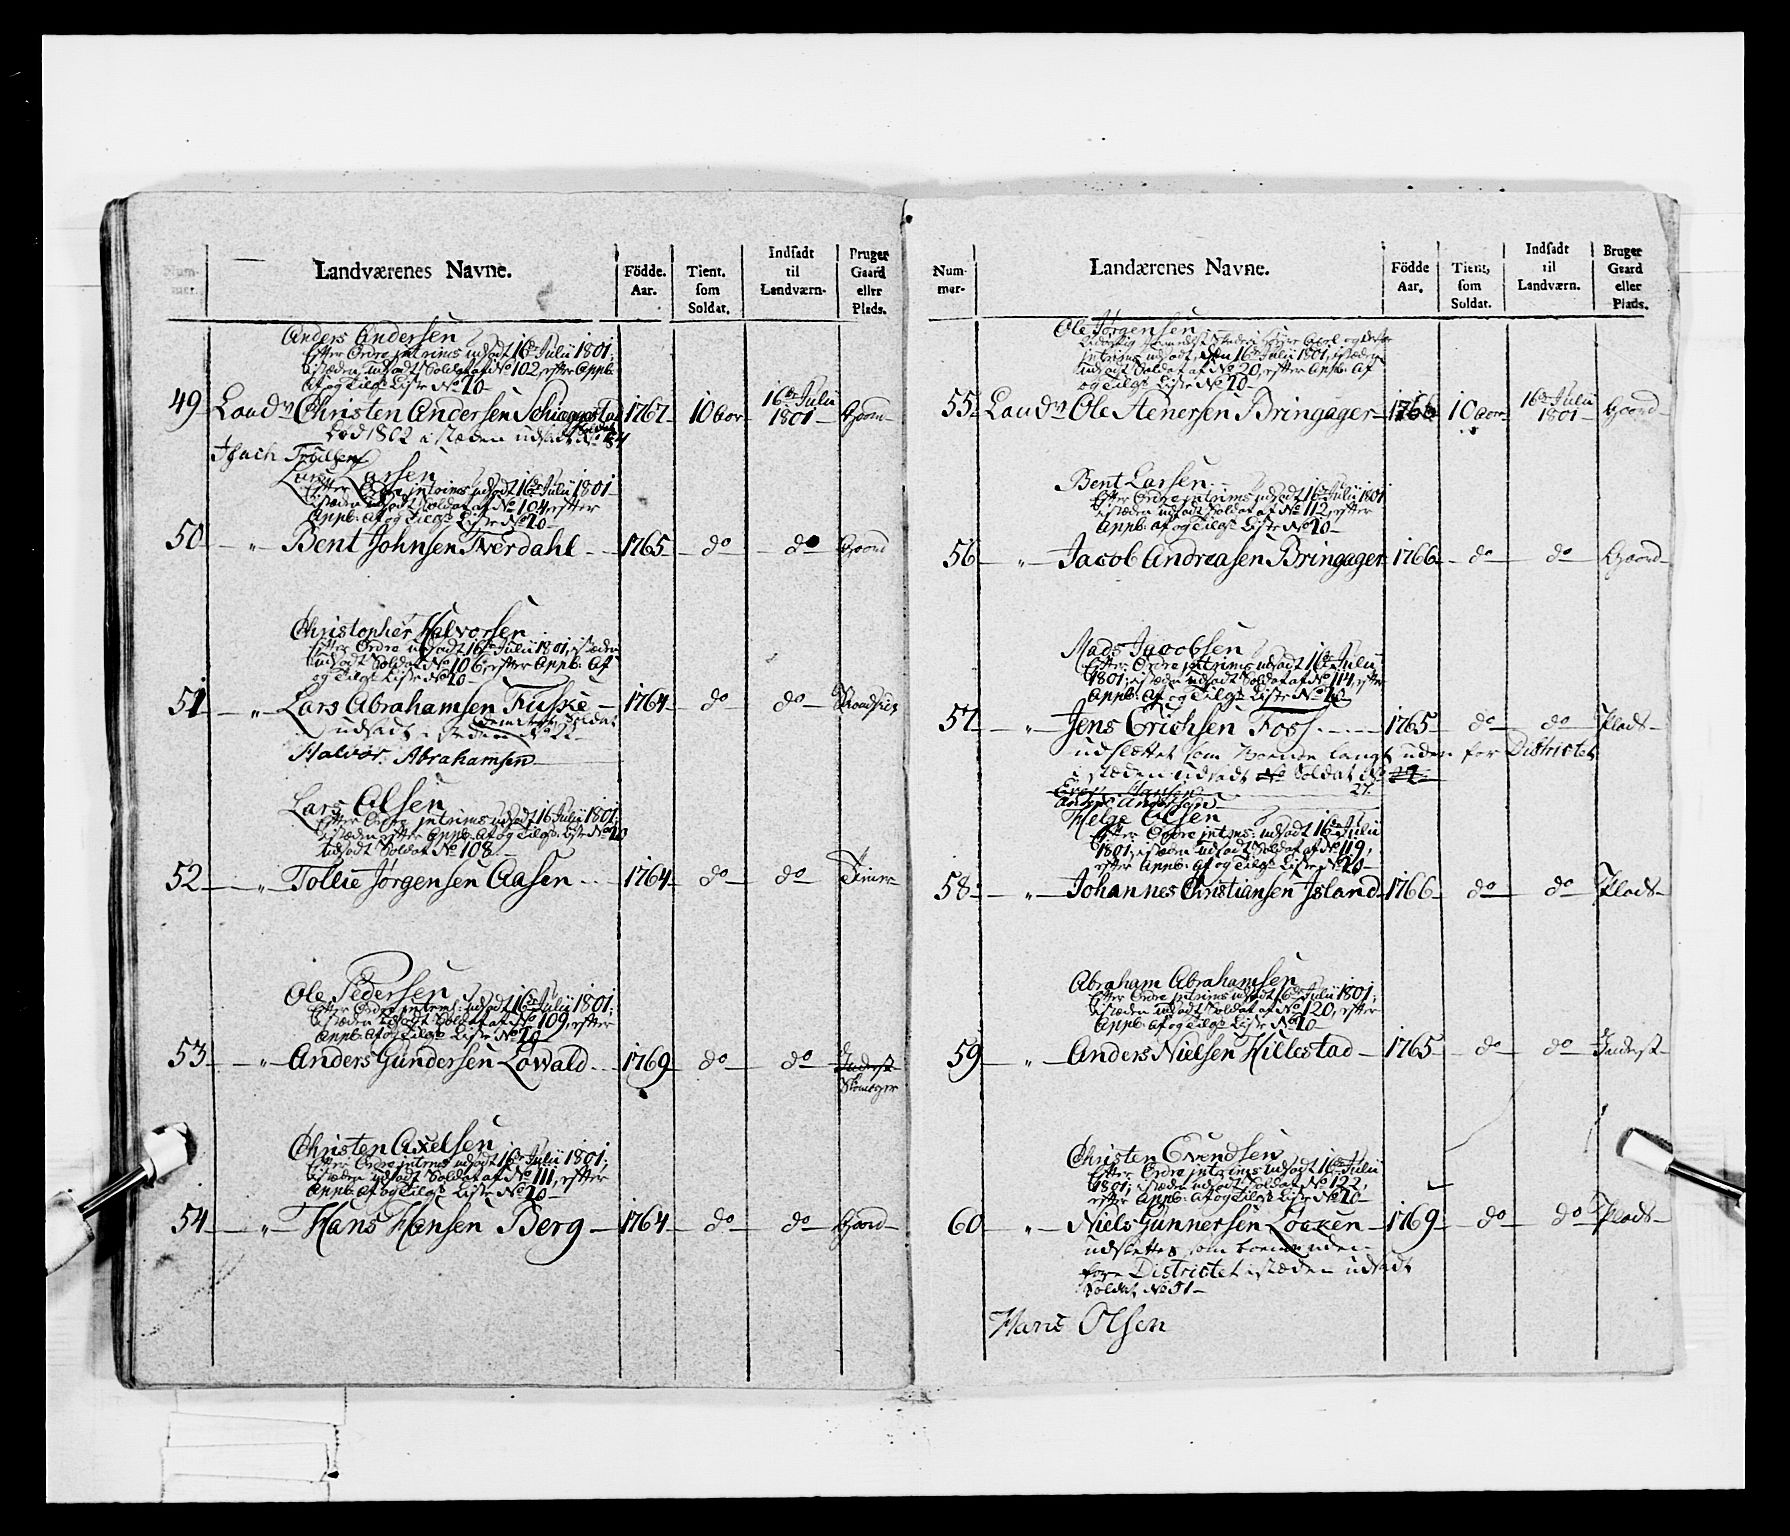 Num-
mer.
Landværenes Navne.
Födde.
Aar.
Tient.
som
Soldat.
Indsadt
til
Landværn.
Bruger
Gaard
eller
Plads.
Anders Andersen
Efter Ordre intrims udsadt 16de Julii 1801;
istæden indsadt Soldat af No 102, efter Appb:
Af og Tilgs Liste No 20-
49 Landvn Christen Andersen Schiaggestad 1767- 10 aar 16de Julii 1801- Gaard-
død 1802 istæden udsadt Soldat No 84
Isach Troelsen
Lars Larsen
Efter Ordre intrims udsadt 16de Julii 1801
istæden indsadt Soldat af No 104, efter
Appb: Af og Tilgs Liste No 20-
50 - " - Bent Johnsen Tverdahl - 1765- do do Gaard
Christopher Halvorsen
Efter Ordre udsadt 16de Julii 1801, istæden
indsadt Soldat No 106, efter Appb: Af
og Tilgs Liste No 20-
51 - " - Lars Abrahamsen Fuske - 1764- do do
udsadt istæden No 22
Halvor Abrahamsen
Lars Olsen
Efter Ordre intrims udsadt 16 Julii 1801;
istæden efter Appb: Af og Tilgs: Liste No 20
indsadt Soldat No 108.
52 - " - Tollie Jørgensen Aasen - 1764- do do
Ole Pedersen
Efter Ordre intrims: udsadt 16de Julii 1801;
istæden indsadt Soldat af No 109, efter
Appb: Af og Tilgs Liste No 20
53 - " - Anders Gundersen Lowald - 1769- do do Inderst
Christen Axelsen
Efter Ordre intrims udsadt 16de Julii 1801;
istæden indsadt Soldat af No 111, efter
Appb: Af og Tilgs Liste No 20-
54 - " - Hans Hansen Berg - 1764- do do Gaard-
Num-
mer.
Landærenes Navne.
Födde
Aar.
Tient.
som
Soldat.
Indsadt
til
Landværn.
Bruger
Gaard
eller
Plads.
Ole Jørgensen
intrims udsadt, den 16de Julii 1801, istæden
indsadt Soldat af No 20, efter Appb: Af
og Tilgs Liste No 20-
55- Landvn Ole Aenersen Bringager- 1766 10 aar- 16de Julii 1801- Gaard-
Bent Larsen
Efter Ordre intrims udsadt 16de Julii 1801
istæden indsadt Soldat af No 112, efter
Appb: Af og Tilgs Liste No 20-
56 - " - Jacob Andreasen Bringager- 1766- do do Gaard-
Mads Jacobsen
Efter Ordre intrims udsadt 16de Julii
1801; istæden indsadt Soldat af No 114, efter
Appb: Af og Tilgs Liste No 20-
57 - " - Jens Erichsen Foss - 1765- do do Plads-
udslettet som boende langt uden for Districtet
istæden udsadt Soldat No 27.
Even Hansen
Anders Andersen
Helge Olsen
Efter Ordre intrims: udsadt 16de Julii
1801; istæden indsadt Soldat af No 119,
efter Appb: Af og Tilgs Liste No 20
58- - " - Johannes Christiansen Island- 1766- do do Plads-
Abraham Abrahamsen
Efter Ordre intrims udsadt 16de Julii 1801;
istæden indsadt Soldat af No 120, efter
Appb: Af og Tilgs Liste No 20-
59 - " - Anders Nielsen Hillestad - 1765- do do Inderst-
Christen Evendsen
Efter Ordre intrims udsadt 16de Julii
1801; istæden indsadt Soldat No 122,
efter Appb: Af og Tilgs Liste No 20-
60 - " - Niels Gunnersen Løcken - 1769- do do Plads-
udslettes som boende uden
fore Districtet istæden udsadt
Soldat No 51-
Hans Olsen